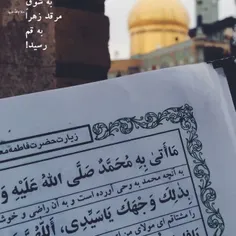 به شوق
مرقد زهرا
به قم
رسید!
زیارت حضرت فاطمه مع
مَاأَتىٰ بِهِ مُحَمَّدٌ صَلَّى اللهُ عَلَيْهِ وَ
به آنچه محمد به وحی آورده است و به آن راضی و خوش
بِذٰلِكَ وَجْهَكَ يَاسَيِّدِى، اَللّٰهُمَّ
را مشتاقم ای مولای من